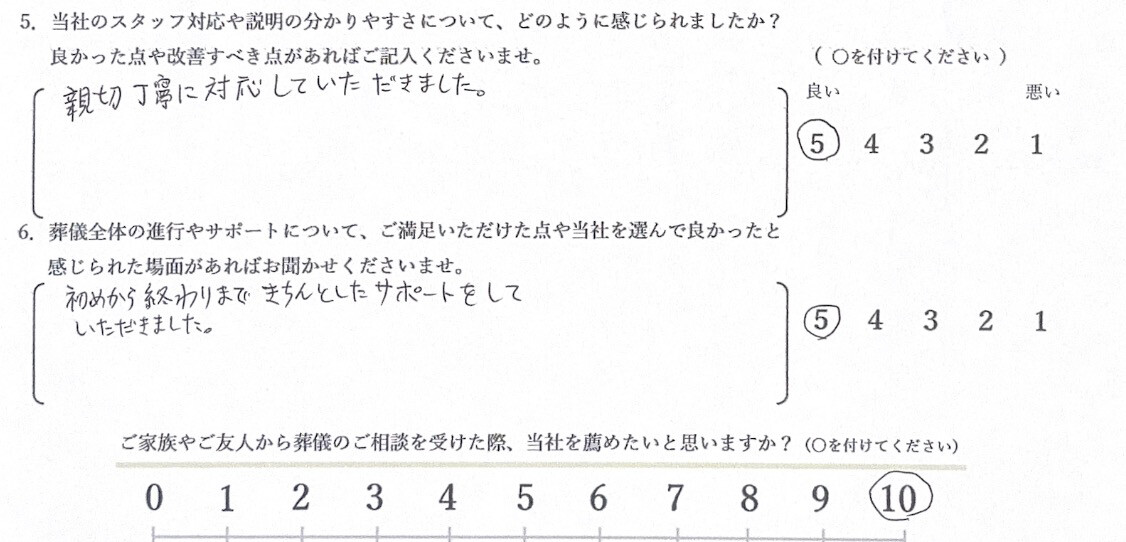 5. 当社のスタッフ対応や説明の分かりやすさについて、どのように感じられましたか？
良かった点や改善すべき点があればご記入くださいませ。
（ ○を付けてください ）
親切丁寧に対応していただきました。
良い 悪い
5 4 3 2 1
6. 葬儀全体の進行やサポートについて、ご満足いただけた点や当社を選んで良かったと
感じられた場面があればお聞かせくださいませ。
初めから終わりまできちんとしたサポートをして
いただきました。
5 4 3 2 1
ご家族やご友人から葬儀のご相談を受けた際、当社を薦めたいと思いますか？（○を付けてください）
0 1 2 3 4 5 6 7 8 9 10